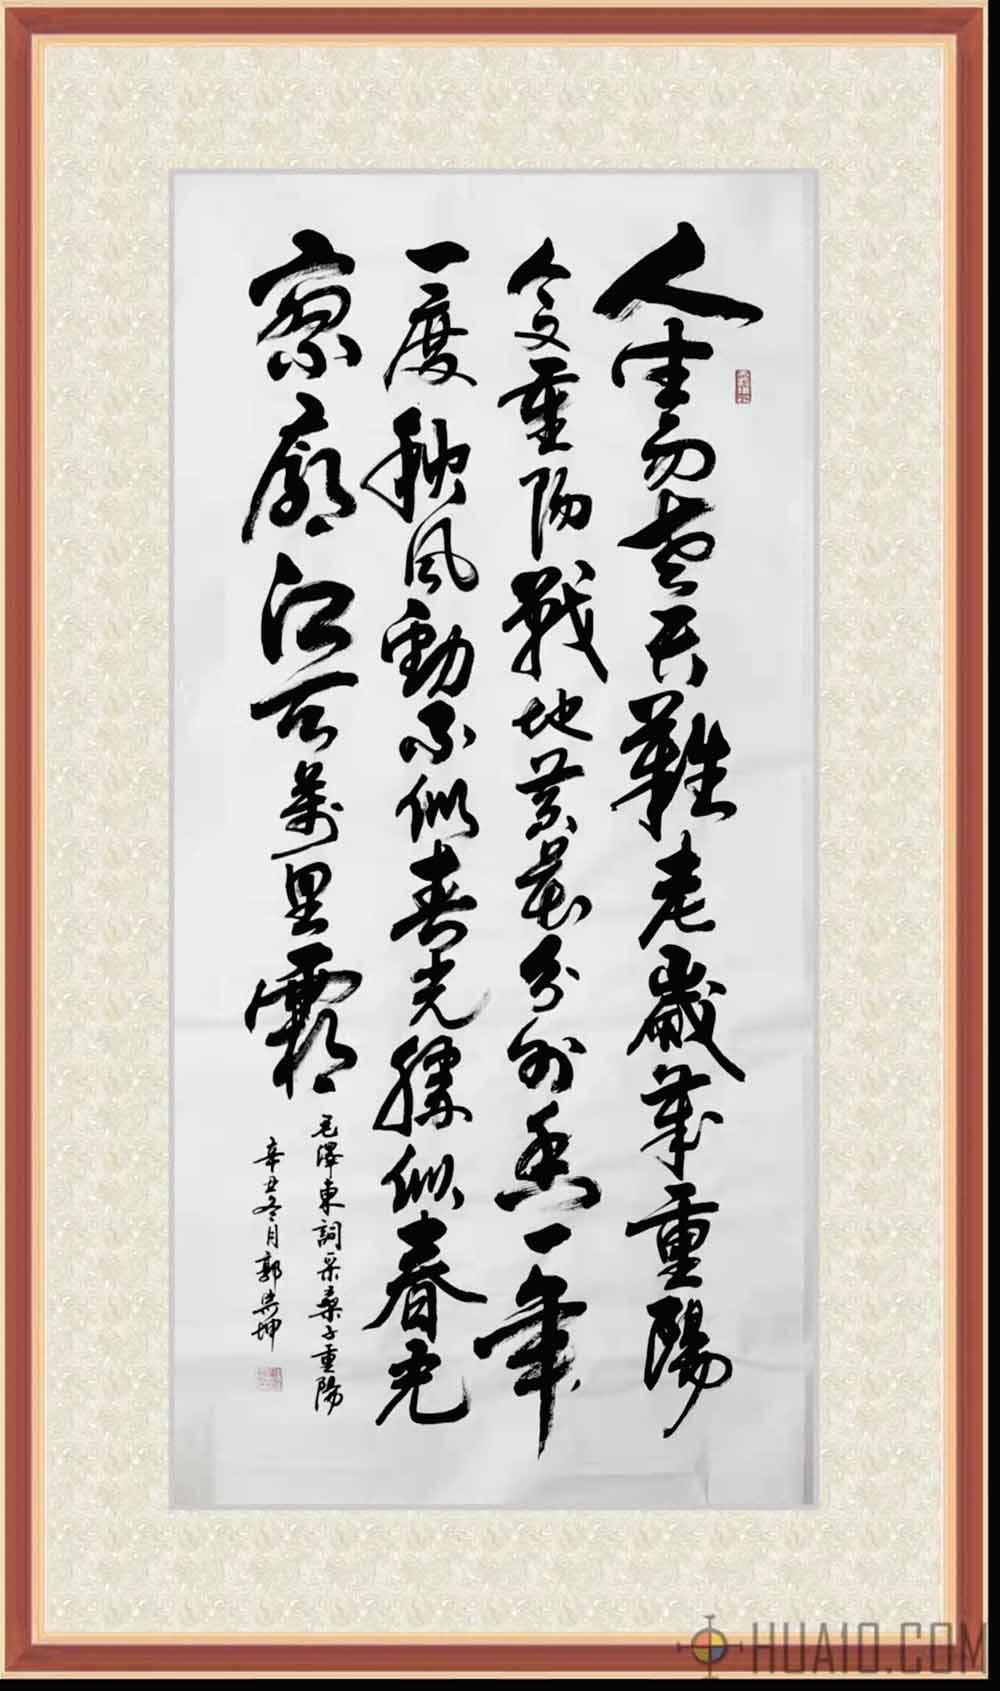 人生易老天難老歲歲重陽
今又重陽戰地黃花分外香一年
一度秋風勁不似春光勝似春光
寥廓江天萬里霜
毛澤東詞采桑子重陽
辛丑冬月郭坤
HUA10.COM